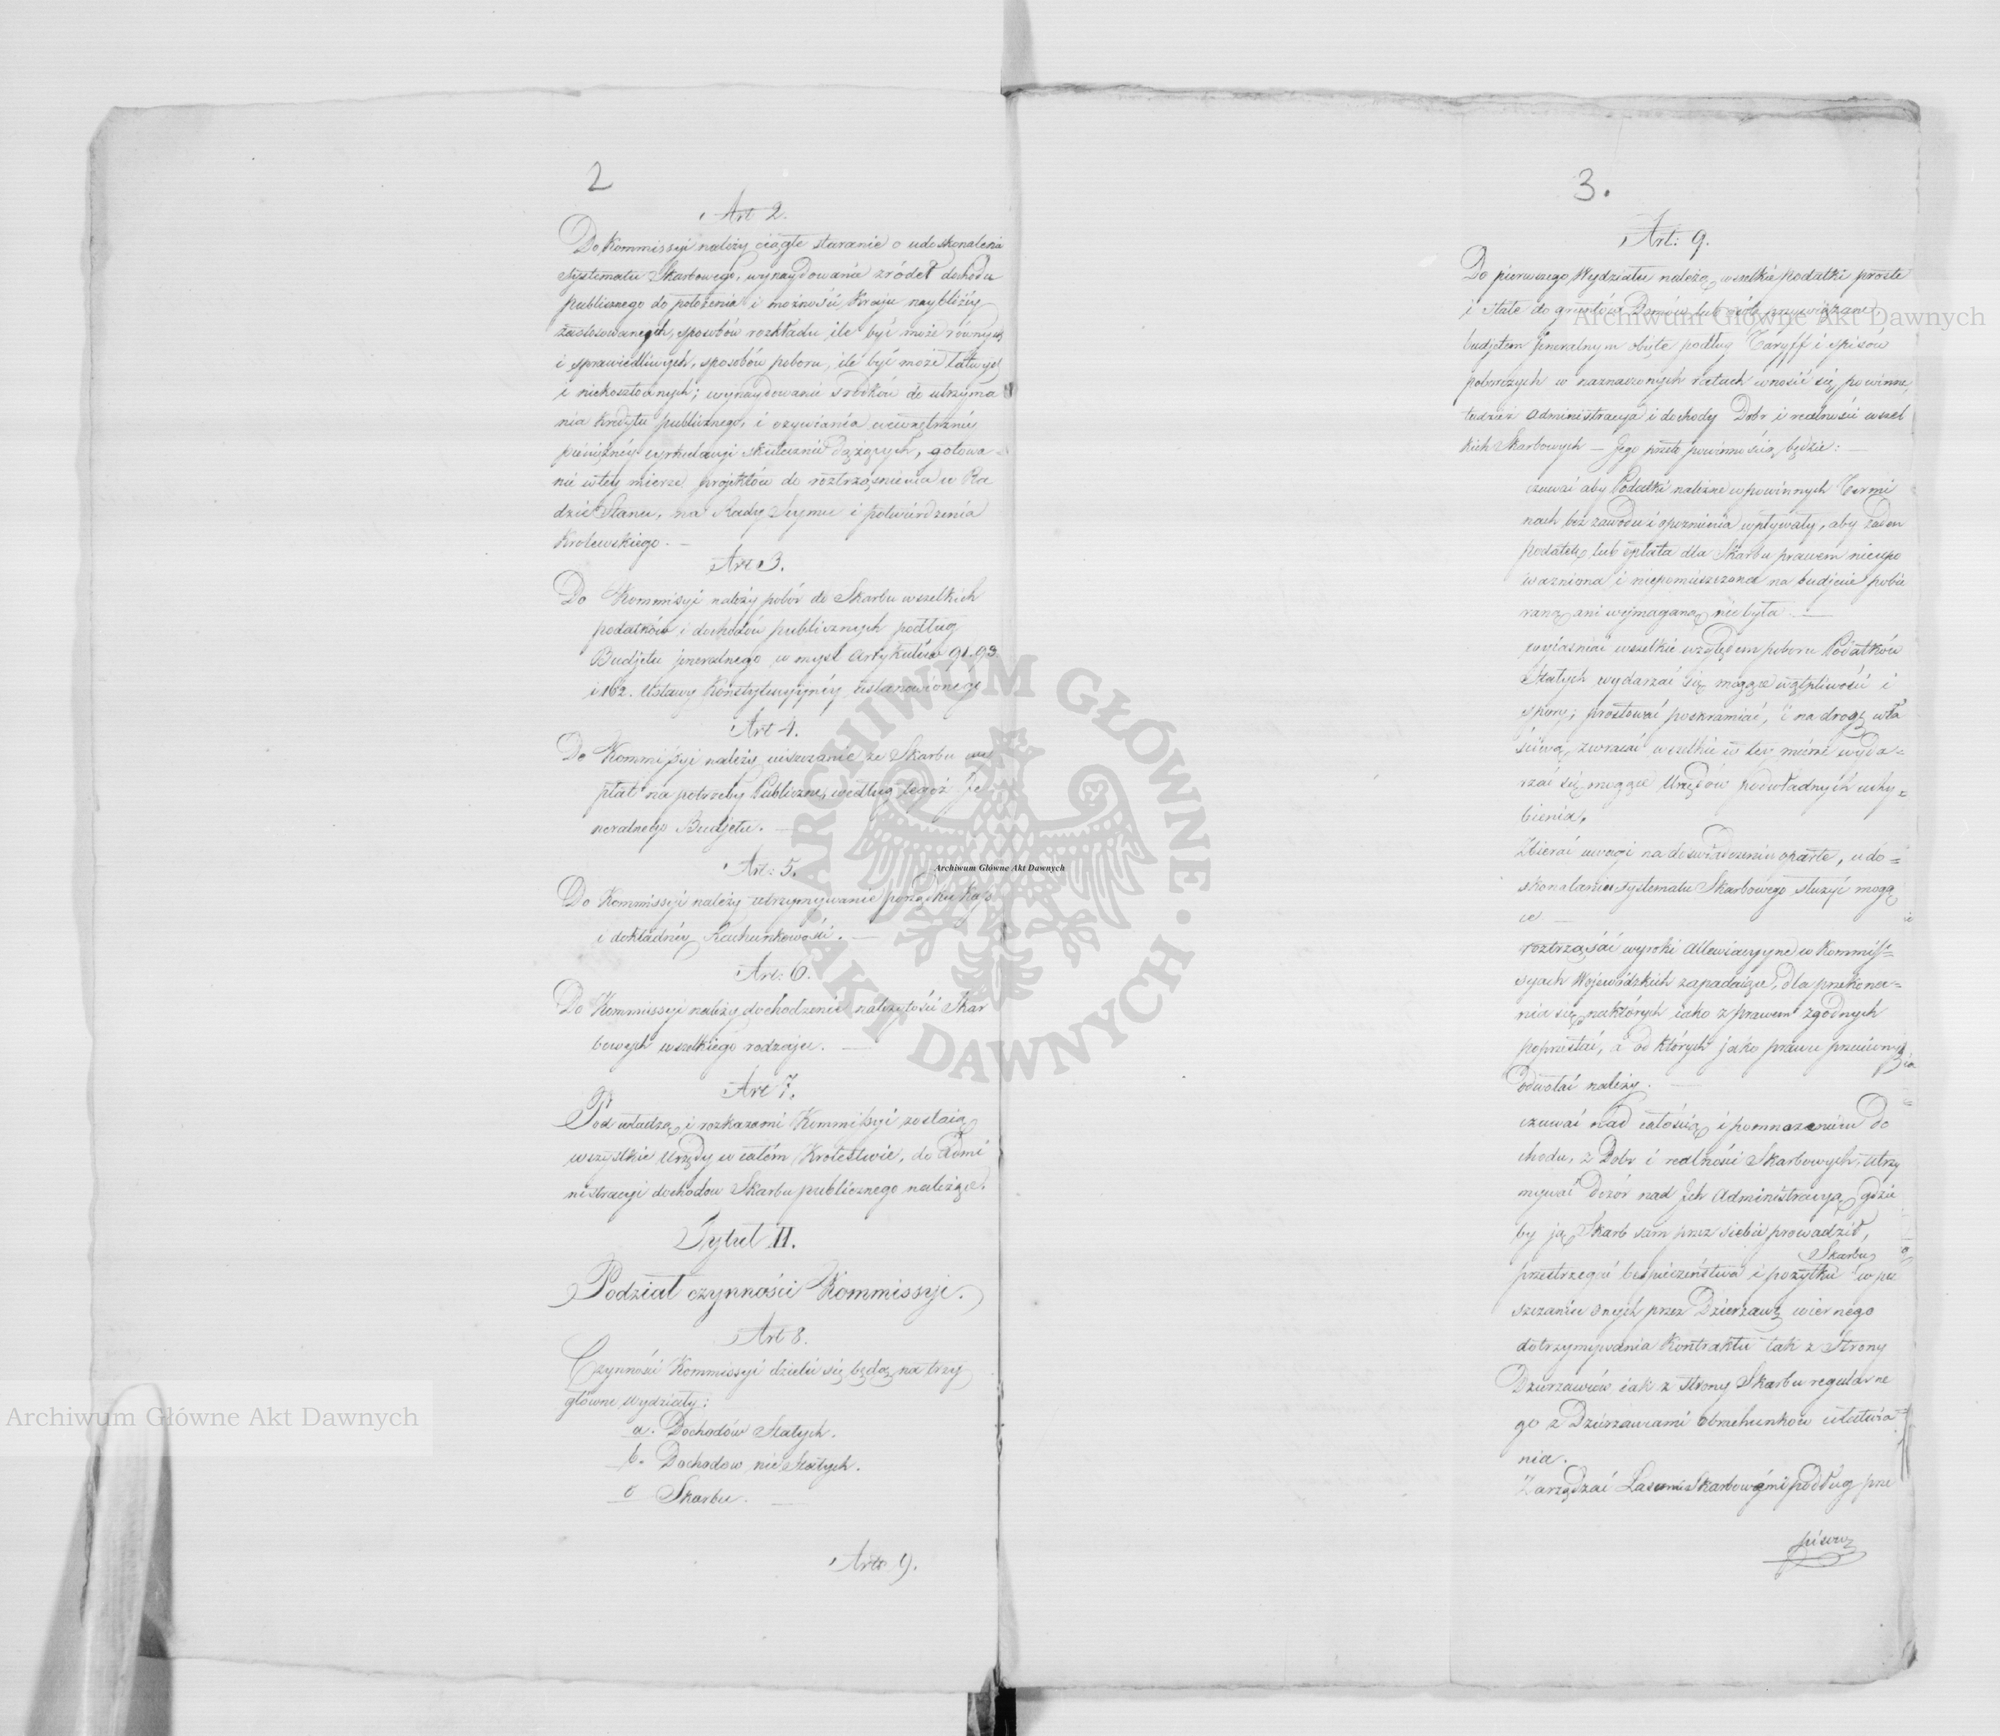 2
Art 2.
Do Kommissyi należy ciągłe staranie o udoskonalenia
systematu Skarbowego, wynaydowania zródeł dochodu
publicznego do położenia i możności Kraju naybliżéy
zastosowanych, sposobów rozkładu ile być może równych
i sprawiedliwych, sposobów poboru, ile być może łatwych
i niekosztownych; wynaydowanie srodków do utrzyma
nia kredytu publicznego, i ożywiania wewnętrznéy
pieniężnéy cyrkulacyi skutecznie dążących, gotowa=
nie w tey mierze projektów do roztrząśnienia w Ra
dzie Stanu, na Rady Seymu i potwierdzenia
Krolewskiego. —
Art 3.
Do Kommisyi należy pobór do Skarbu wszelkich
podatków i dochodów publicznych podług
Budjetu jeneralnego w myśl Artykułów 91. 93.
i 162. Ustawy Konstytucyynéy ustanowionego
Art 4.
Do Kommissyi należy uiszczanie ze Skarbu wy
płat na potrzeby Publiczne, według tegoż Je
neralnego Budjetu. —
Art: 5.
Do Kommissyi należy utrzymywanie porządku Kass
i dokładnéy Rachunkowości. —
Art: 6.
Do Kommissyi należy dochodzenie należytości Skar
bowych wszelkiego rodzaju. —
Art 7.
Pod władzą i rozkazami Kommissyi zostaią
wszystkie Urzędy w całém Krolestwie, do Admi
nistracyi dochodow Skarbu publicznego należące.
Tytuł II.
Podział czynności Kommissyi.
Art 8.
Czynności Kommissyi dzielić się będą na trzy
główne wydziały:
a. Dochodów Stałych.
b. Dochodow nie Stałych.
c Skarbu. —
Art: 9.
3.
Art: 9.
Do pierwszego Wydziału należą wszelkie podatki proste
i Stałe do gruntów Domów lub osób przywiązane,
budjetem jeneralnym objęte podług Taryff i spisów
poborczych w naznaczonych ratach wnosić się powinne,
tudzież Administracya i dochody Dobr i realności wszel
kich Skarbowych — Jego przeto powinnością będzie: —
czuwać aby Podatki należne w powinnych Termi
nach bez zawodu i spoznienia wpływały, aby żaden
podatek, lub opłata dla Skarbu prawem nieupo
ważniona i niepomieszczona na budjecie pobie
raną ani wymaganą nie była. —
wyiaśniać wszelkie względem poboru Podatków
Stałych wydarzać się mogące wątpliwości i
spory; prostować poskramiać, i na drogę wła
ściwą zwracać wszelkie w tey mierze wyda=
rzać się mogące Urzędów podwładnych uchy=
bienia,
Zbierać uwagi na doświadczeniu oparte, udo=
skonaleniu systematu Skarbowego służyć mogą
ce —
roztrząsać wyroki Allewiacyyne w Kommis=
syach Wojewódzkich zapadaiące, dla przekona=
nia się na których iako z prawem zgodnych
poprzestać, a od których jako prawu przeciwnych
odwołać należy. —
czuwać nad całością i pomnożeniem do
chodu, z Dobr i realności Skarbowych, utrzy
mywać Dozór nad Jch Administracyą gdzie
by ją Skarb sam przez siebie prowadził,
Skarbu
przestrzegać bezpieczeństwa i pożytku w pu
szczaniu onych przez Dzierzawę wiernego
dotrzymywania Kontraktu tak z Strony
Dzierzawców iak z strony Skarbu regularne
go z Dzierzawcami obrachunkow ułatwia=
nia.
Zarządzać Lasami Skarbowémi podług prze
pisow
Archiwum Główne Akt Dawnych
Archiwum Główne Akt Dawnych
Archiwum Główne Akt Dawnych
ARCHIWUM GŁÓWNE · AKT DAWNYCH ·